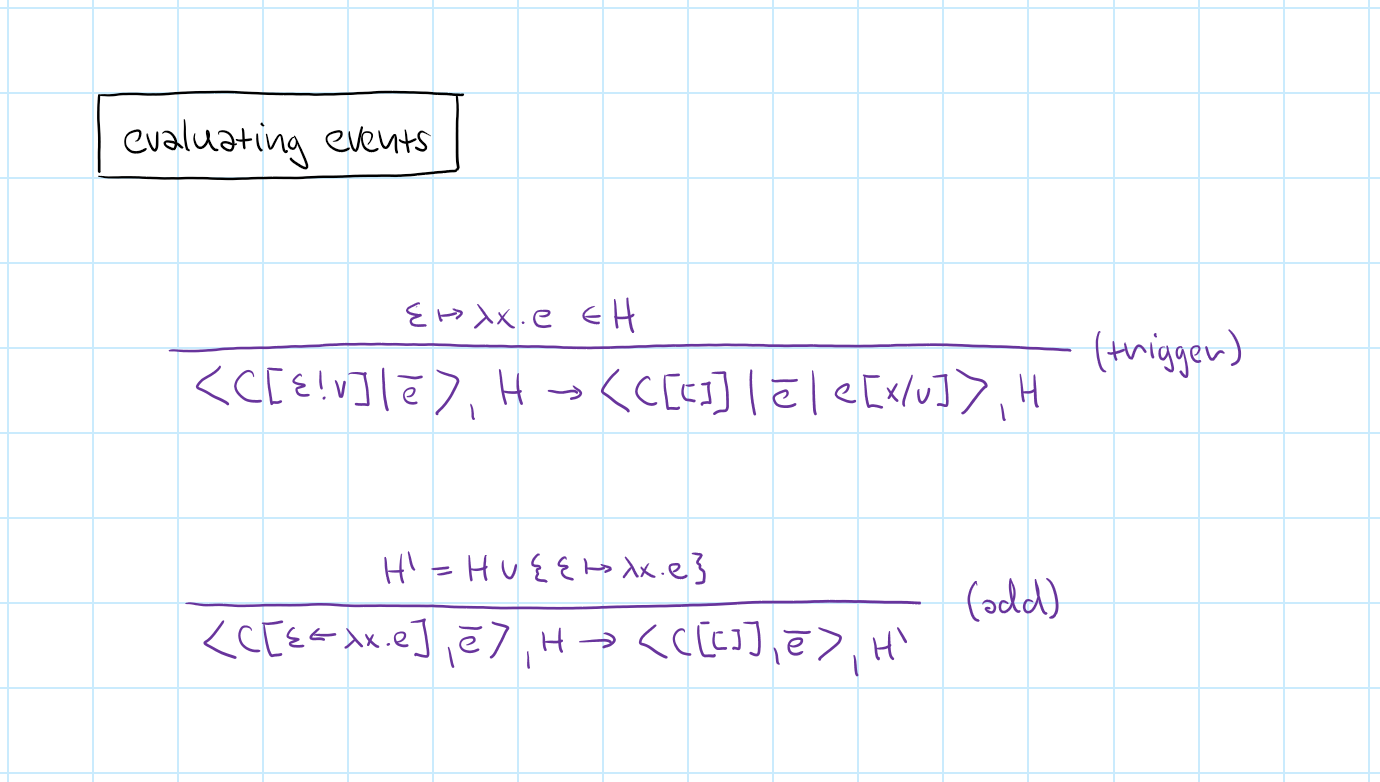 evaluating events
ε ↦ λx.e ∈ H
<C[ε!v]|ē>, H → <C[[]]|ē|e[x/v]>, H (trigger)
H' = H ∪ {ε ↦ λx.e}
<C[ε ← λx.e], ē>, H → <C[[]], ē>, H' (add)